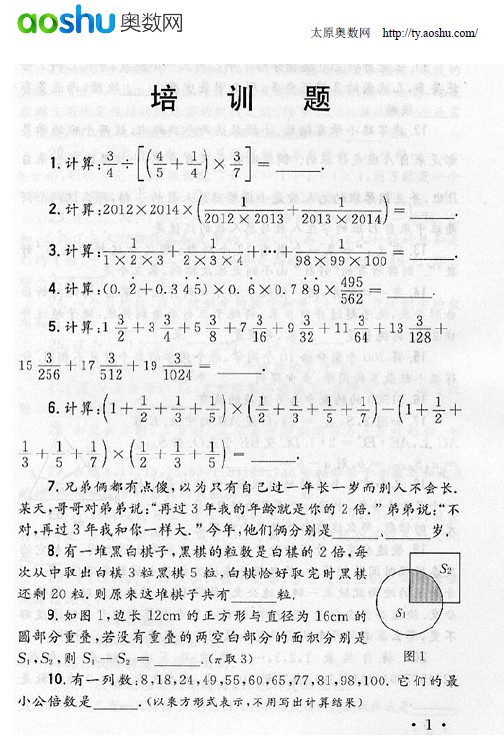 aoshu 奥数网
太原奥数网 http://ty.aoshu.com/
培 训 题
1.计算:3/4÷[(4/5+1/4)×3/7]=______.
2.计算:2012×2014×(1/(2012×2013)+1/(2013×2014))=______.
3.计算:1/(1×2×3)+1/(2×3×4)+…+1/(98×99×100)=______.
4.计算:(0.2̇+0.3̇45̇)×0.6̇×0.7̇89̇×495/562=______.
5.计算:1 3/2+3 3/4+5 3/8+7 3/16+9 3/32+11 3/64+13 3/128+
15 3/256+17 3/512+19 3/1024=______.
6.计算:(1+1/2+1/3+1/5)×(1/2+1/3+1/5+1/7)-(1+1/2+
1/3+1/5+1/7)×(1/2+1/3+1/5)=______.
7.兄弟俩都有点傻,以为只有自己过一年长一岁而别人不会长.
某天,哥哥对弟弟说:“再过3年我的年龄就是你的2倍.”弟弟说:“不
对,再过3年我和你一样大.”今年,他们俩分别是______、______岁.
8.有一堆黑白棋子,黑棋的粒数是白棋的2倍,每
次从中取出白棋3粒黑棋5粒,白棋恰好取完时黑棋
还剩20粒,则原来这堆棋子共有______粒.
9.如图1,边长12cm的正方形与直径为16cm的
圆部分重叠,若没有重叠的两空白部分的面积分别是
S₁,S₂,则S₁-S₂=______.(π取3)
S₂
S₁
图1
10.有一列数:8,18,24,49,55,60,65,77,81,98,100.它们的最
小公倍数是______.(以乘方形式表示,不用写出计算结果)
·1·